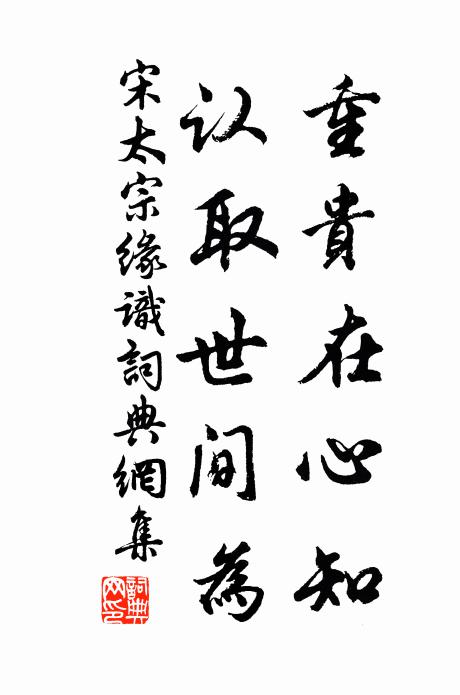 重貴在心知
认取世间為
宋太宗緣識詞典網集
詞典網印